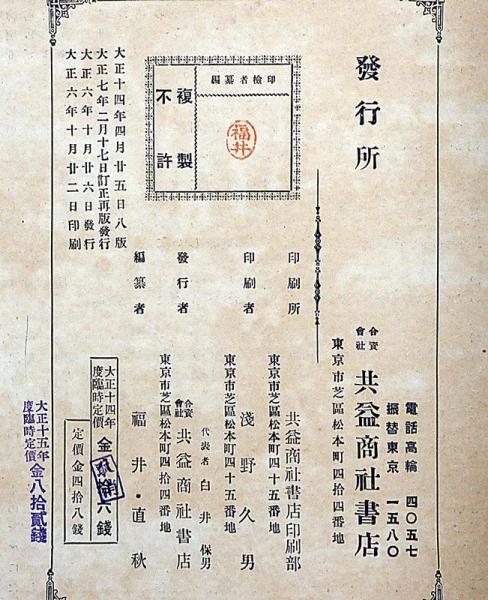 大正六年十月廿二日印刷
大正六年十月廿六日發行
大正七年二月十七日訂正再版發行
大正十四年四月廿五日八版
編纂者檢印
福井
不許
複製
編纂者
福井直秋
發行者
東京市芝區松本町四拾四番地
合資會社
共益商社書店
代表者 白井保男
印刷者
東京市芝區松本町四十五番地
淺野久男
印刷所
東京市芝區松本町四十五番地
共益商社書店印刷部
發行所
東京市芝區松本町四拾四番地
合資會社
共益商社書店
電話高輪 四〇五七
振替東京 一五八〇
定價金四拾八錢
大正十四年
度臨時定價
金
六錢
大正十五年
度臨時定價
金八拾貳錢